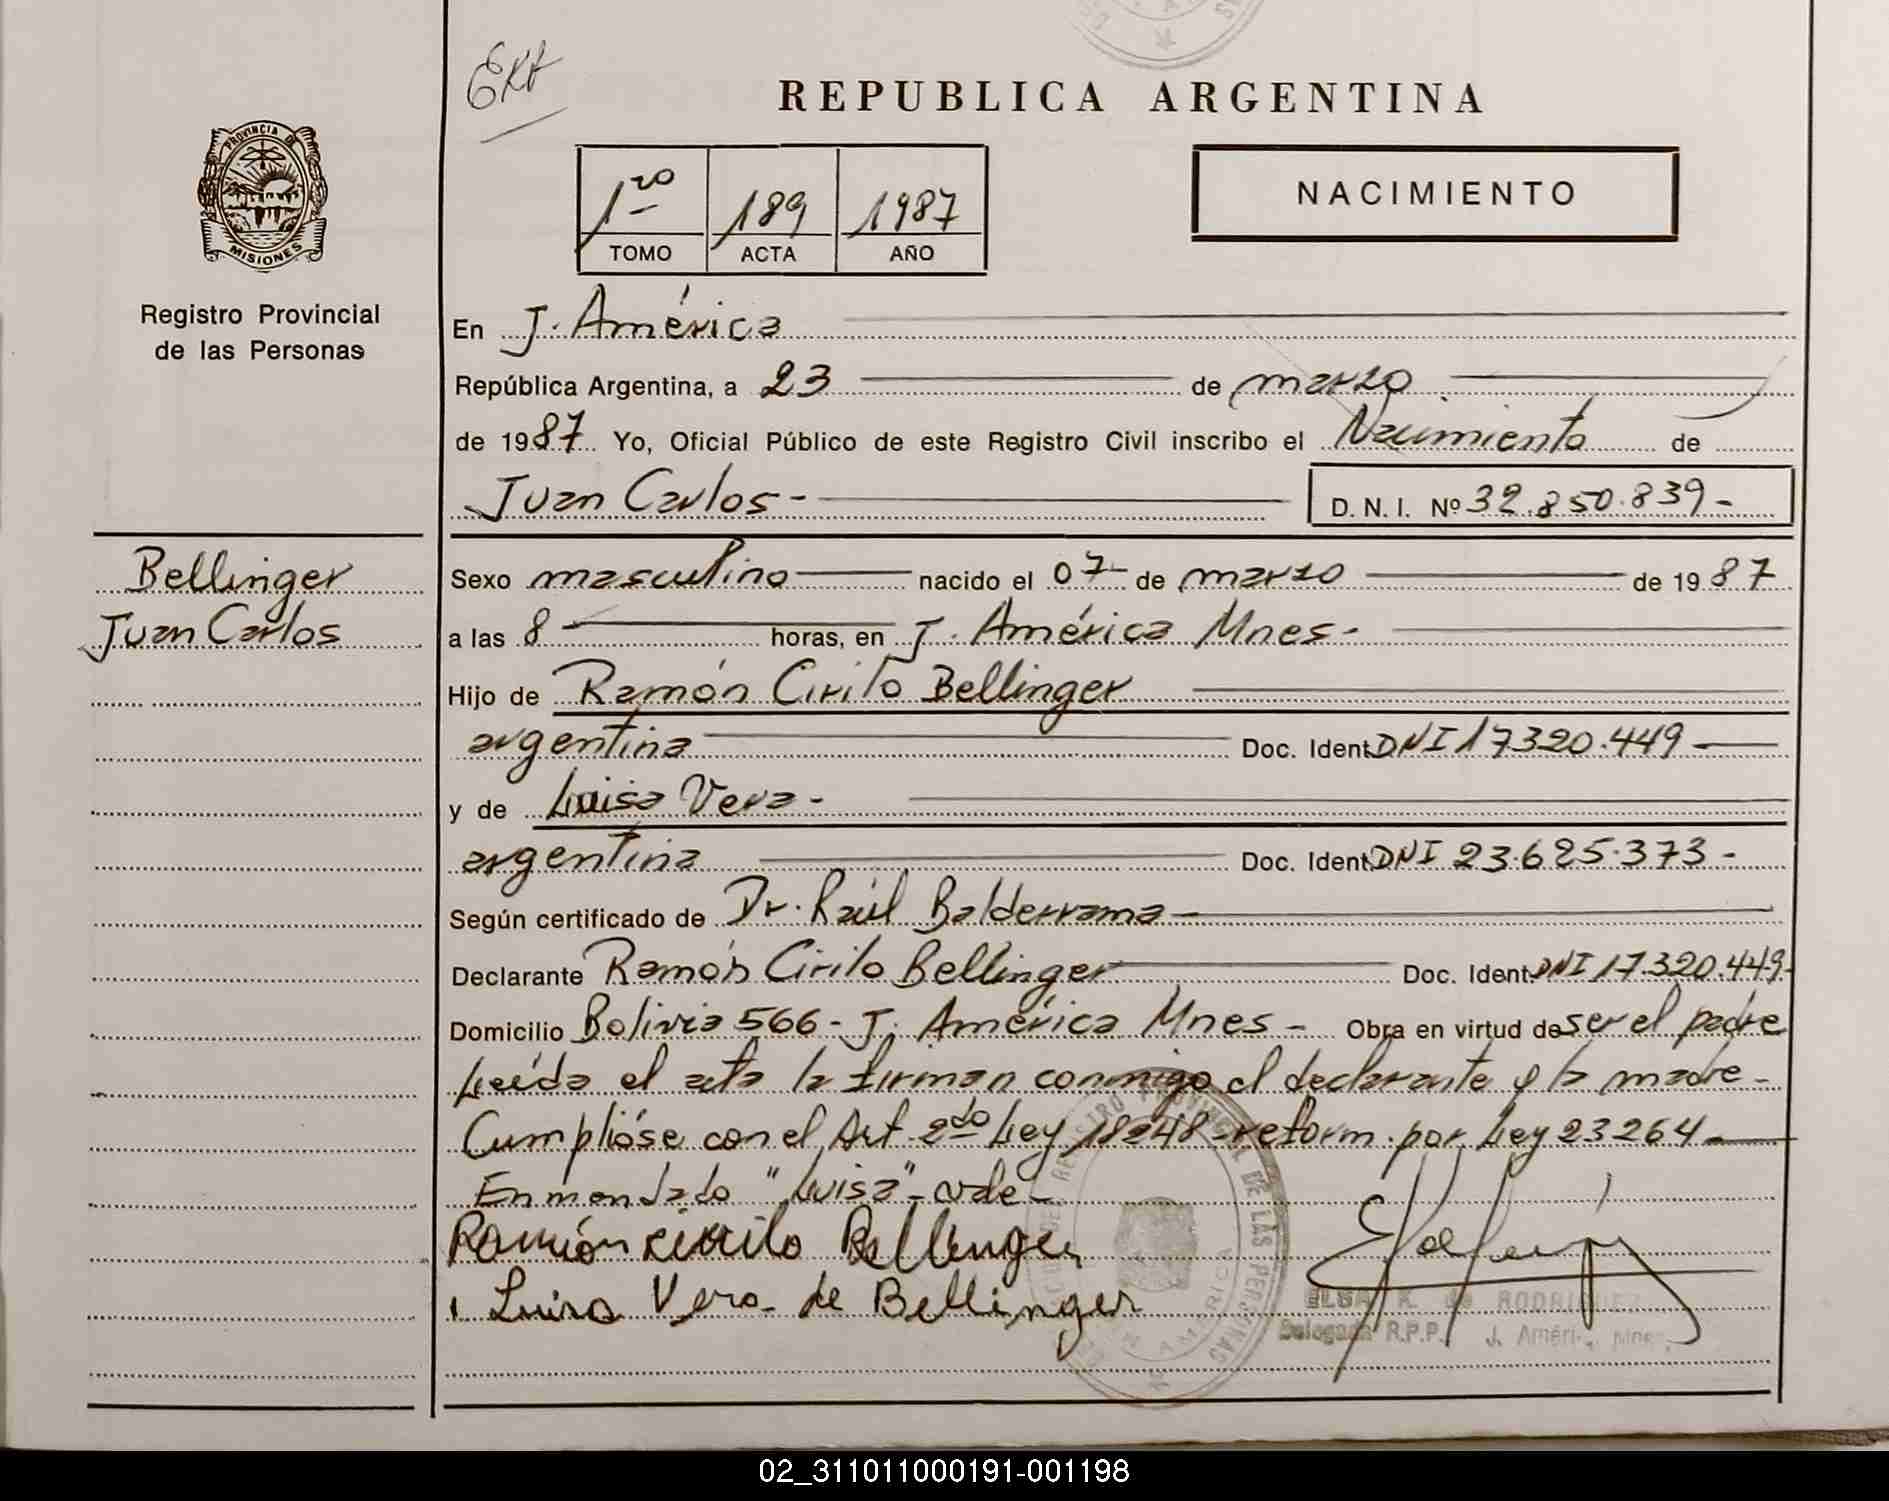 Ext
REPUBLICA ARGENTINA
PROVINCIA DE
MISIONES
1ro 189 1987
TOMO ACTA AÑO
NACIMIENTO
Registro Provincial
de las Personas
En J. América
República Argentina, a 23 de marzo
de 1987 Yo, Oficial Público de este Registro Civil inscribo el Nacimiento de
Juan Carlos - D. N. I. Nº 32.850.839 -
Bellinger
Juan Carlos
Sexo masculino nacido el 07 de marzo de 1987
a las 8 horas, en J. América Mnes -
Hijo de Ramón Cirilo Bellinger
argentina Doc. Ident. DNI 17320.449
y de Luisa Vera -
argentina Doc. Ident. DNI 23.625.373 -
Según certificado de Dr. Raúl Balderrama -
Declarante Ramón Cirilo Bellinger Doc. Ident. DNI 17.320.449
Domicilio Bolivia 566 - J. América Mnes - Obra en virtud de ser el padre
Leída el acta la firman conmigo el declarante y la madre -
Cumplióse con el Art 2do Ley 18248 - reform. por Ley 23264 -
Enmendado "Luisa" - vale -
Ramón Cirilo Bellinger
Luisa Vera de Bellinger
ELSA K. de RODRIGUEZ
Delegada R.P.P. J. Améri. Mnes.
REGISTRO PROVINCIAL DE LAS PERSONAS
02_311011000191-001198